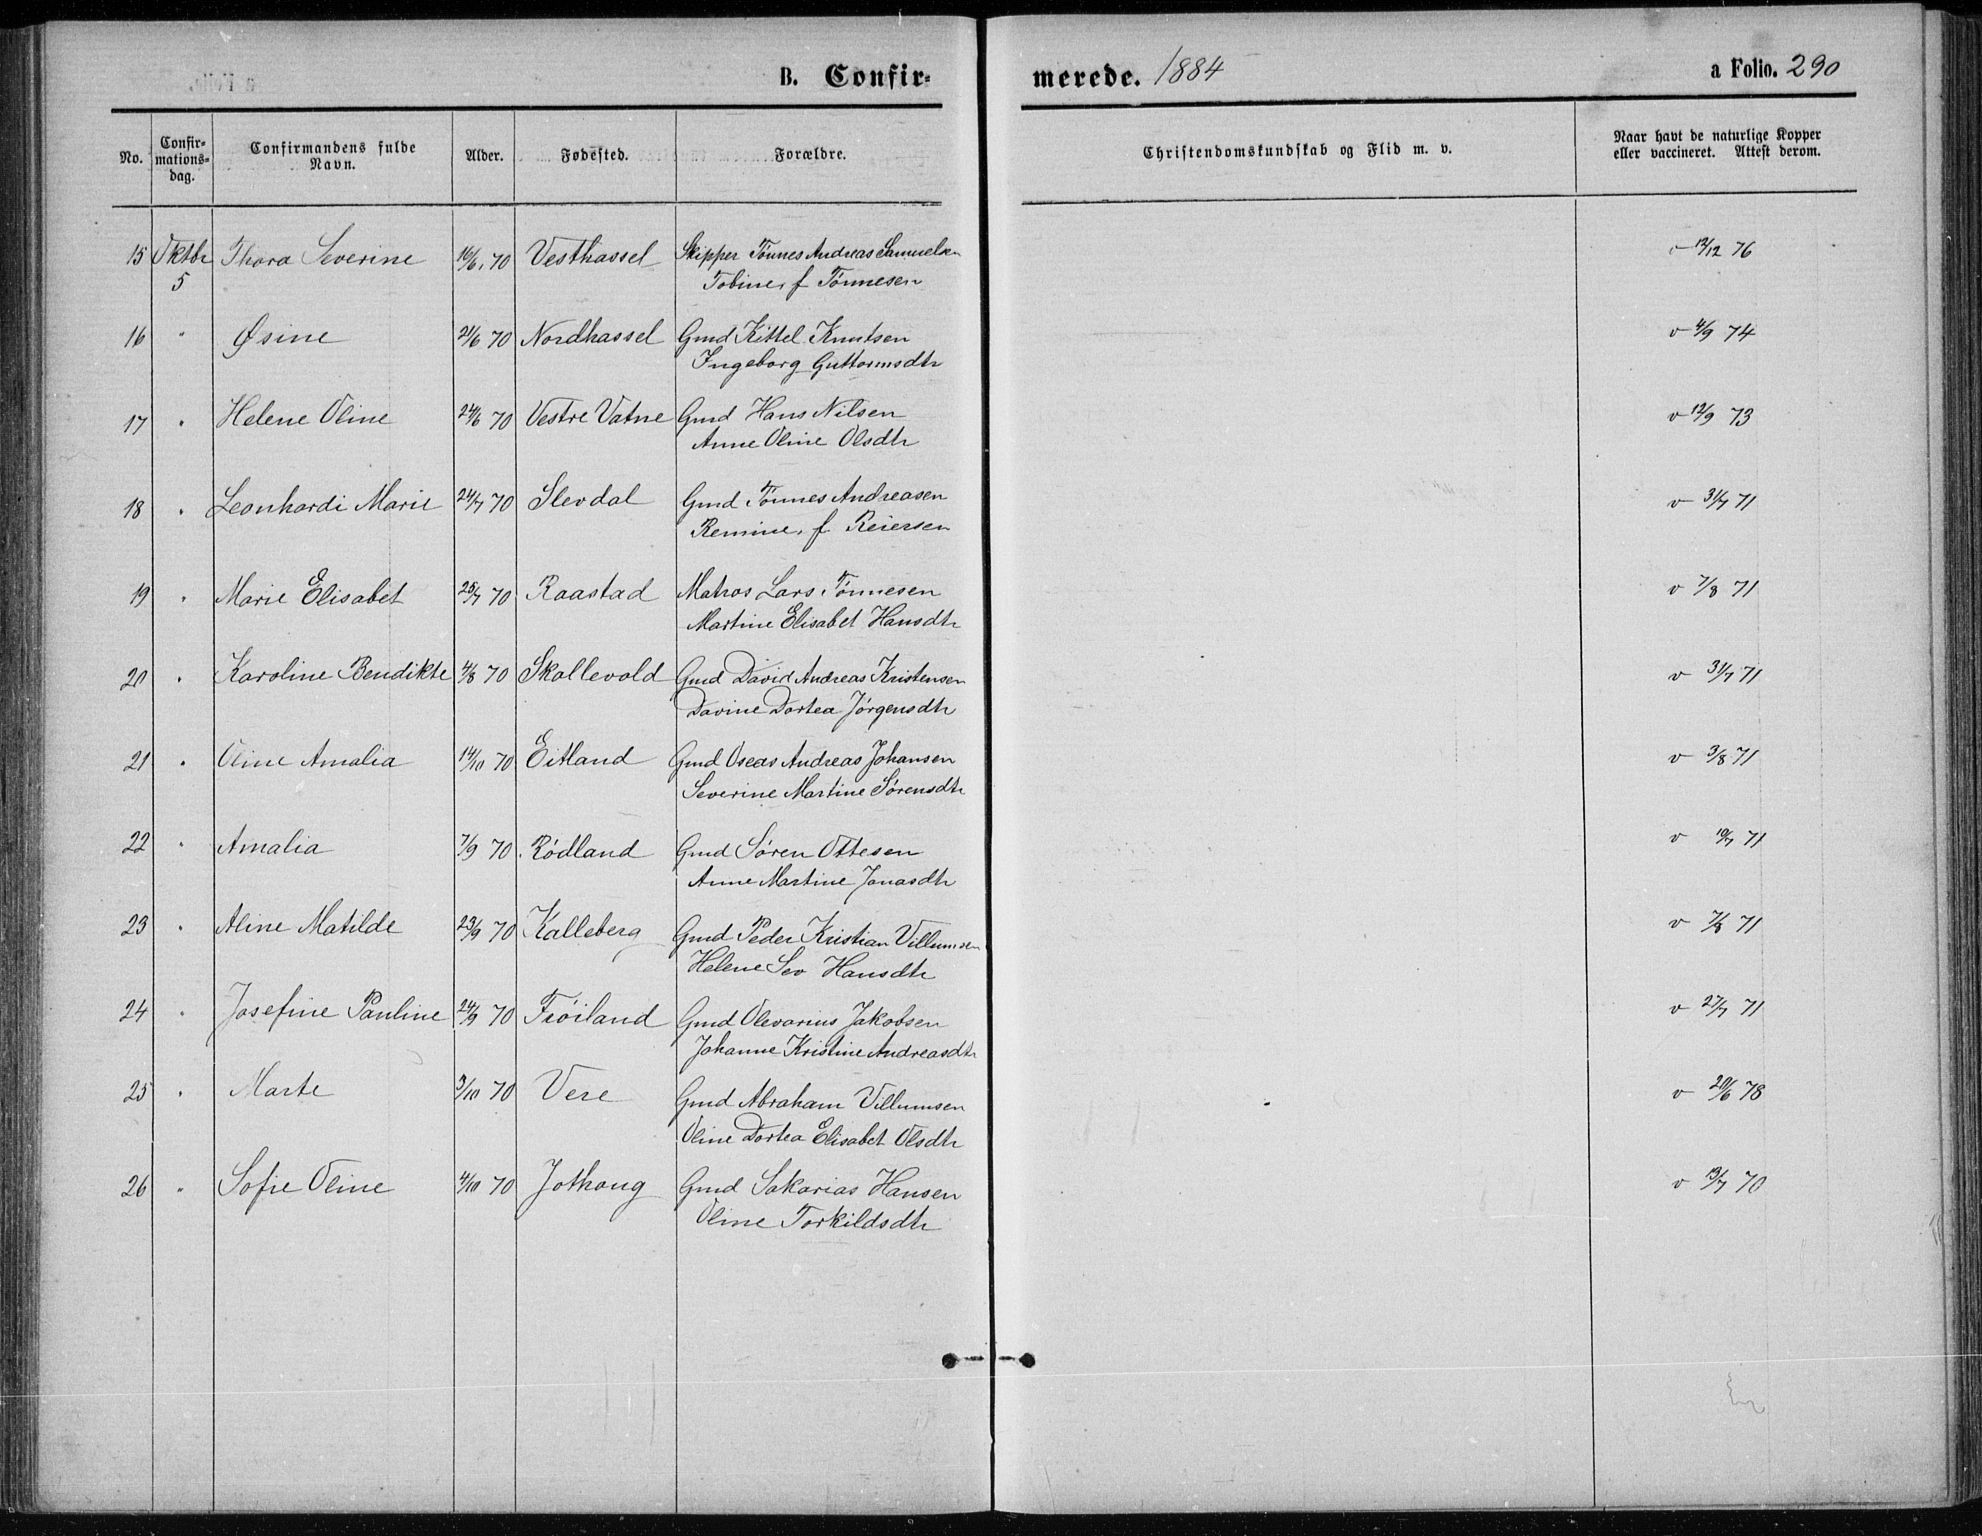 B. Confir-
merede. 1884
a Folio. 290
No.
Confir-
mations-
dag.
Confirmandens fulde
Navn.
Alder.
Fødested.
Forældre.
Christendomskundskab og Flid m. v.
Naar havt de naturlige Kopper
eller vaccineret. Attest derom.
15 Oktbr Thora Severine 16/6 70 Vesthassel Skipper Tønnes Andreas Samuelsen v 12/12 76
5 Tobine f Tønnesen
16 " Øsine 21/6 70 Nordhassel Gmd Kittel Knutsen v 4/9 74
Ingeborg Guttormsdtr
17 " Helene Oline 24/6 70 Vestre Vatne Gmd Hans Nilsen v 12/9 73
Anne Oline Olsdtr
18 " Leonhardi Marie 24/7 70 Slevdal Gmd Tønnes Andreasen v 31/7 71
Remine f Reiersen
19 " Marie Elisabet 25/7 70 Raastad Matros Lars Tønnesen v 7/8 71
Martine Elisabet Hansdtr
20 " Karoline Bendikte 4/8 70 Skollevold Gmd David Andreas Kristensen v 31/7 71
Davine Dortea Jørgensdtr
21 " Oline Amalia 14/10 70 Eitland Gmd Oseas Andreas Johansen v 3/8 71
Severine Martine Sørensdtr
22 " Amalia 7/9 70 Rødland Gmd Søren Ottesen v 19/7 71
Anne Martine Jonasdtr
23 " Aline Matilde 23/9 70 Kalleberg Gmd Peder Kristian Villumsen v 7/8 71
Helene Sev Hansdtr
24 " Josefine Pauline 24/9 70 Frøiland Gmd Olevarius Jakobsen v 27/7 71
Johanne Kristine Andreasdtr
25 " Marte 3/10 70 Vere Gmd Abraham Villumsen v 20/6 78
Oline Dortea Elisabet Olsdtr
26 " Sofie Oline 4/10 70 Jothaug Gmd Sakarias Hansen v 13/7 70
Oline Torkildsdtr